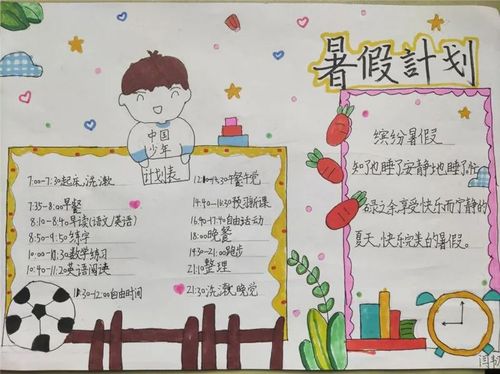 暑假計划
中国
少年
计划表
7:00-7:30起床,洗漱
7:35-8:00早餐
8:10-8:40早读(语文/英语)
8:50-9:50练字
10:00-10:30数学练习
10:40-11:20英语阅读
11:30-12:00自由时间
14:40-16:30预习新课
16:40-17:40自由活动
18:00晚餐
19:30-21:00跑步
21:10整理
21:30洗漱,晚觉
缤纷暑假
知了也睡了安静地睡了,忙
碌之余享受快乐而宁静的
夏天,快乐完美的暑假。